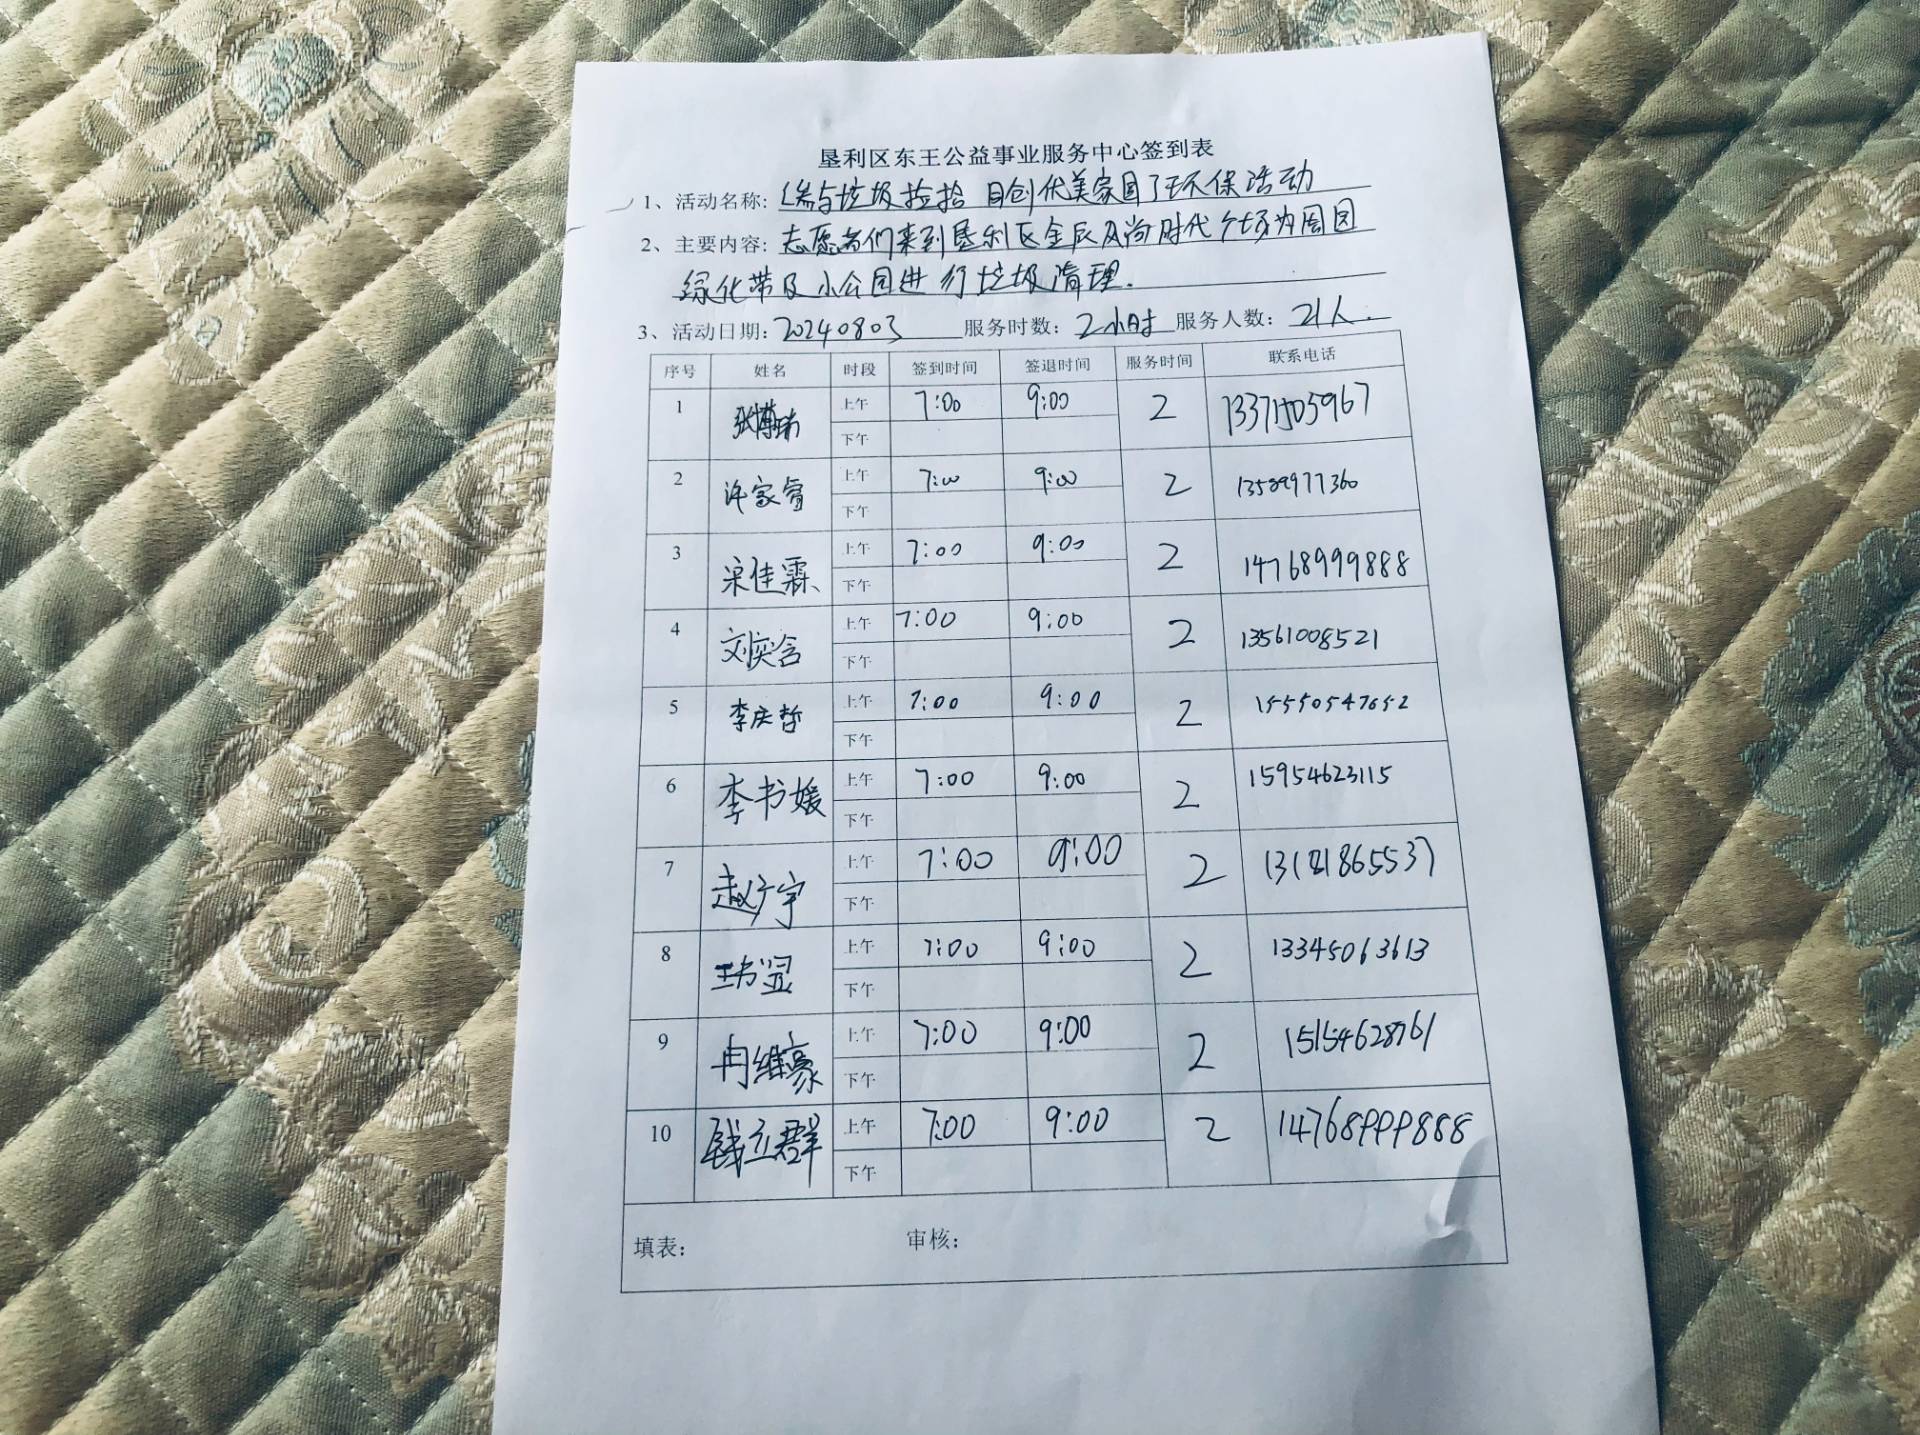 垦利区东王公益事业服务中心签到表
1、活动名称: 参与垃圾捡拾 美家园 环保活动
2、主要内容: 志愿者们来到垦利区金辰 时代广场 周围
绿化带及小公园进行垃圾清理.
3、活动日期: 20240803 服务时数: 2小时 服务人数: 21人.
序号 姓名 时段 签到时间 签退时间 服务时间 联系电话
1 张博 上午 7:00 9:00 2
下午
2 许家睿 上午 7:00 9:00 2 13589977360
下午
3 宋佳霖 上午 7:00 9:00 2 14768999888
下午
4 刘奕含 上午 7:00 9:00 2 13561008521
下午
5 李庆哲 上午 7:00 9:00 2 15550547652
下午
6 李书媛 上午 7:00 9:00 2 15954623115
下午
7 赵广宇 上午 7:00 9:00 2
下午
8 上午 7:00 9:00 2 13345063613
下午
9 冉维豪 上午 7:00 9:00 2 15154628761
下午
10 钱立群 上午 7:00 9:00 2 14768999888
下午
填表: 审核: